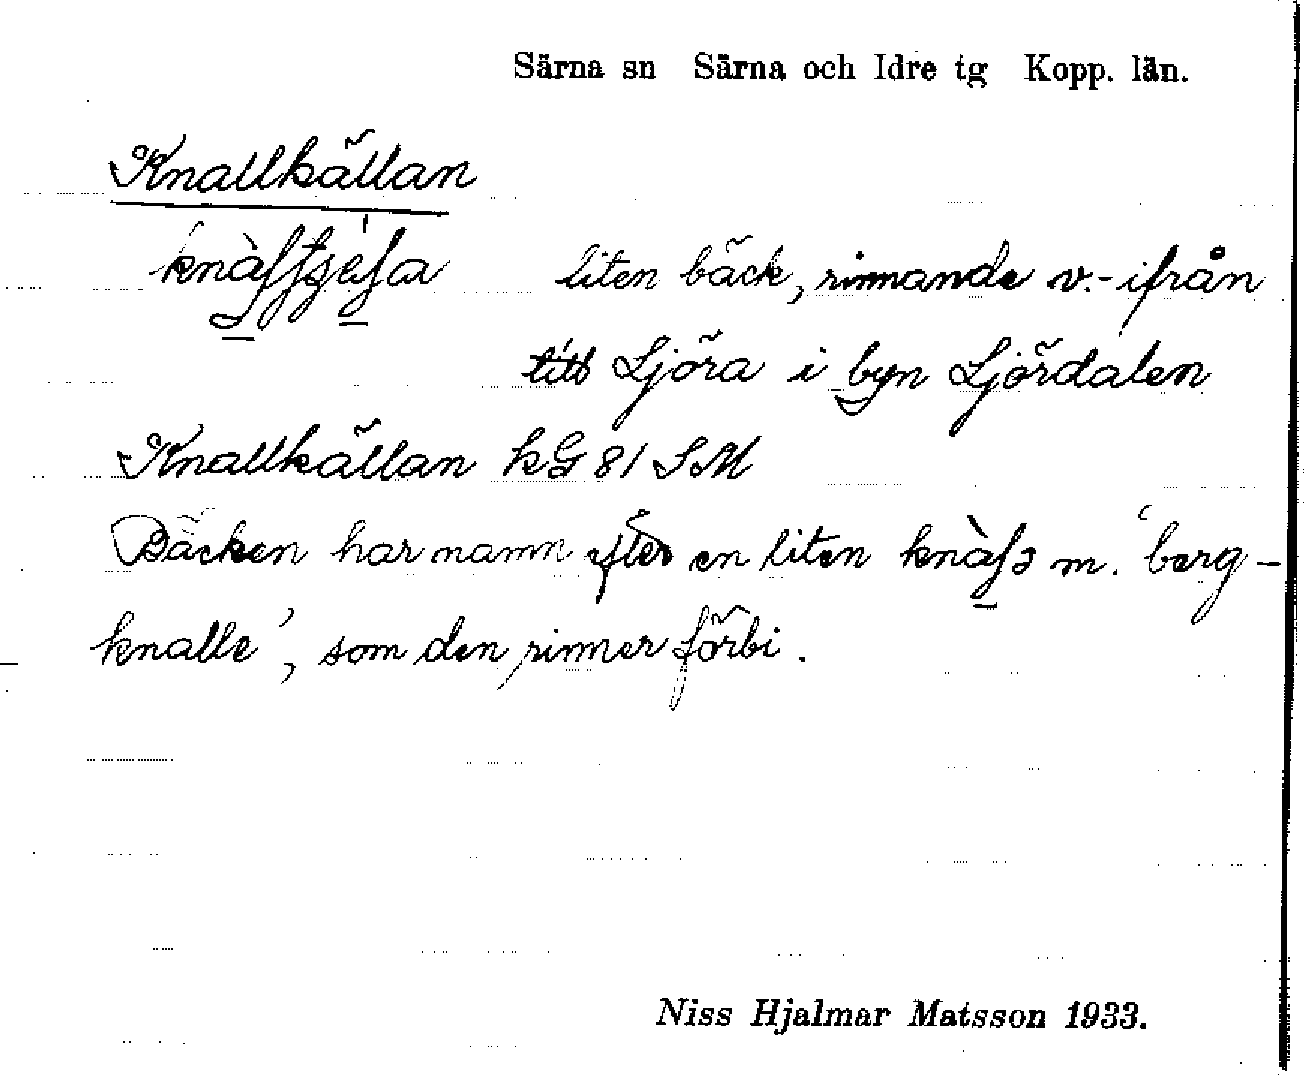 Särna sn Särna och Idre tg Kopp. län.
Knallkällan
liten bäck, rinnande v.-ifrån
till Ljöra i byn Ljördalen
Knallkällan kG 81 SM
Bäcken har namn efter en liten m. 'berg-
knalle', som den rinner förbi.
Niss Hjalmar Matsson 1933.